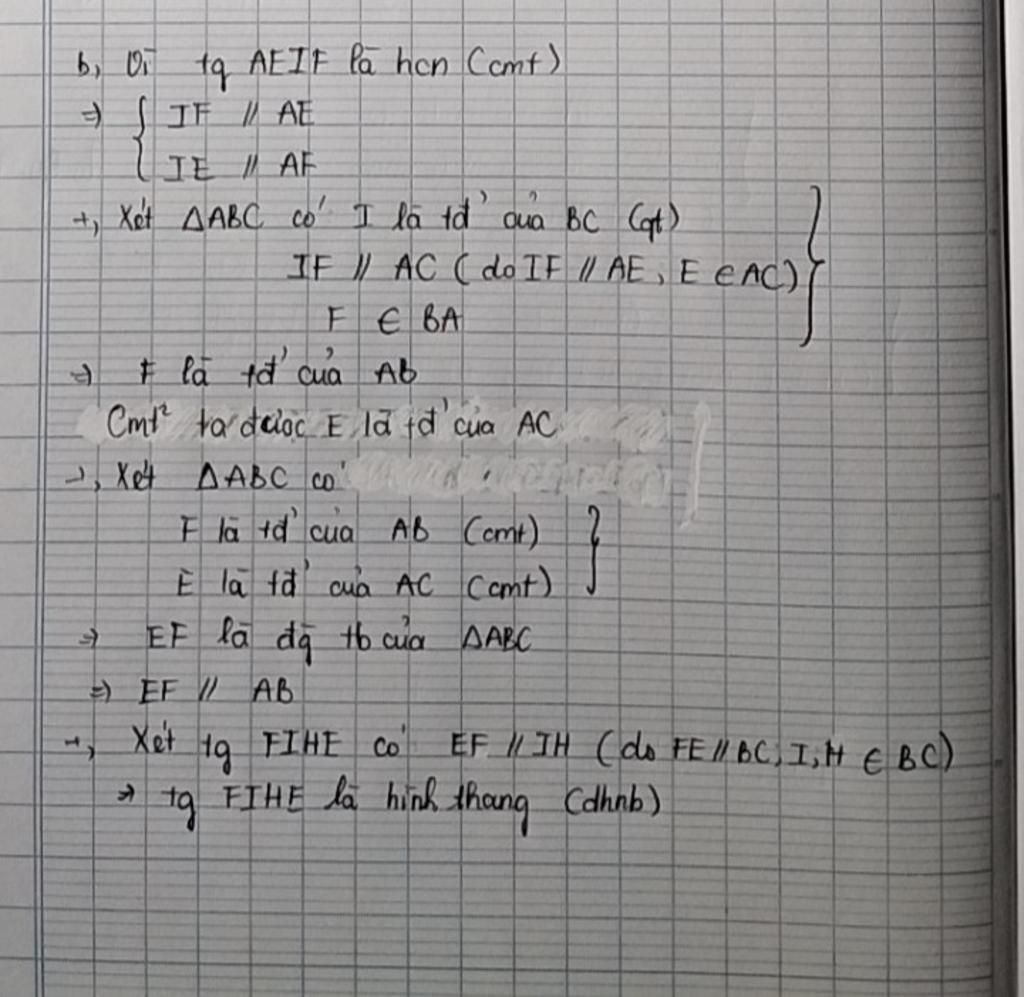 b, Vì tg AEIF là hcn (cmt)
=> { IF // AE
IE // AF
+, Xét ΔABC có I là tđ' của BC (gt)
IF // AC (do IF // AE, E ∈ AC) }
F ∈ BA
=> F là tđ' của AB
Cmt² ta được E là tđ' của AC
+, Xét ΔABC có
F là tđ' của AB (cmt) }
E là tđ' của AC (cmt)
=> EF là đg tb của ΔABC
=> EF // AB
+, Xét tg FIHE có EF // IH (do FE // BC, I, H ∈ BC)
=> tg FIHE là hình thang (dhnb)